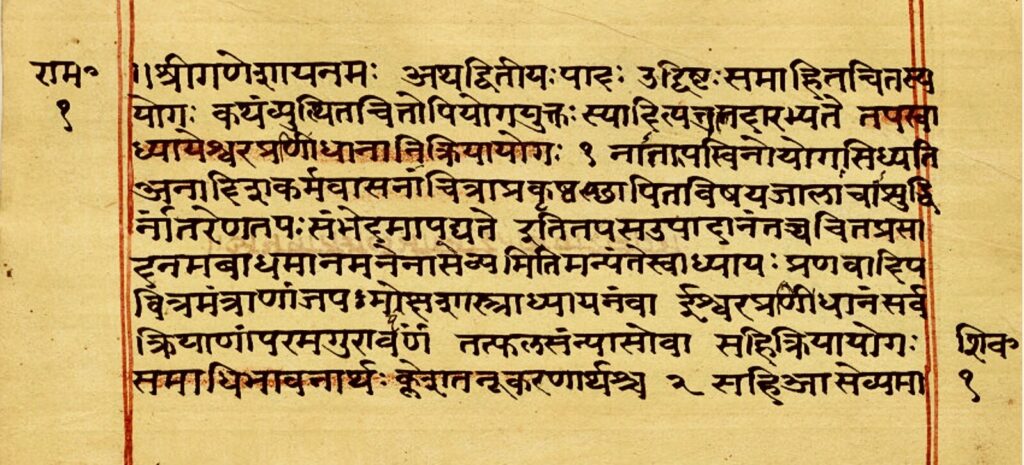 राम॰
१
॥श्रीगणेशायनमः अथद्वितीयःपादः उद्दिष्टःसमाहितचितस्य
योगः कथंव्युत्थितचितोपियोगयुक्तः स्यादित्येतत्तदारभ्यते तपस्वा
ध्यायेश्वरप्रणीधानानिक्रियायोगः १ नातापस्विनोयोगसिध्यति
विषयजालाचांसुद्धि
र्नांतरेणतपःसंभेदमापद्यते इतितपसउपादानंतच्चचितप्रसा
दनमबाधमानमनेनासेव्यमितिमन्यंतेस्वाध्यायः प्रणवादिप
वित्रमंत्राणांजपः मोक्षशास्त्राध्यायनंवा ईश्वरप्रणीधानंसर्व
क्रियाणांपरमगुरावर्पणं तत्फलसंन्यासोवा सहिक्रियायोगः
शिव॰
१
समाधिभावनार्थः क्लेशतनूकरणार्थश्च २ सहिआसेव्यमा